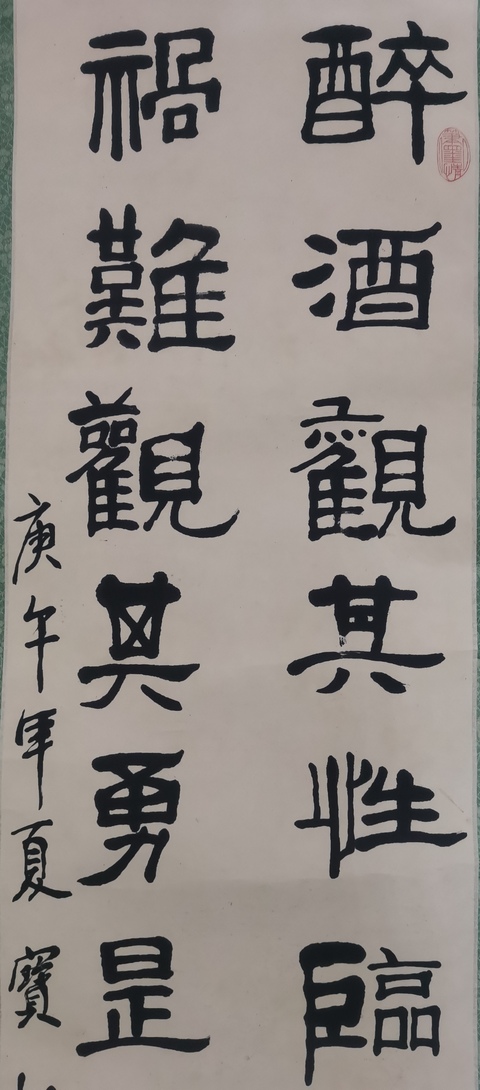 醉酒觀其性臨
禍難觀其勇是
庚午年夏寶